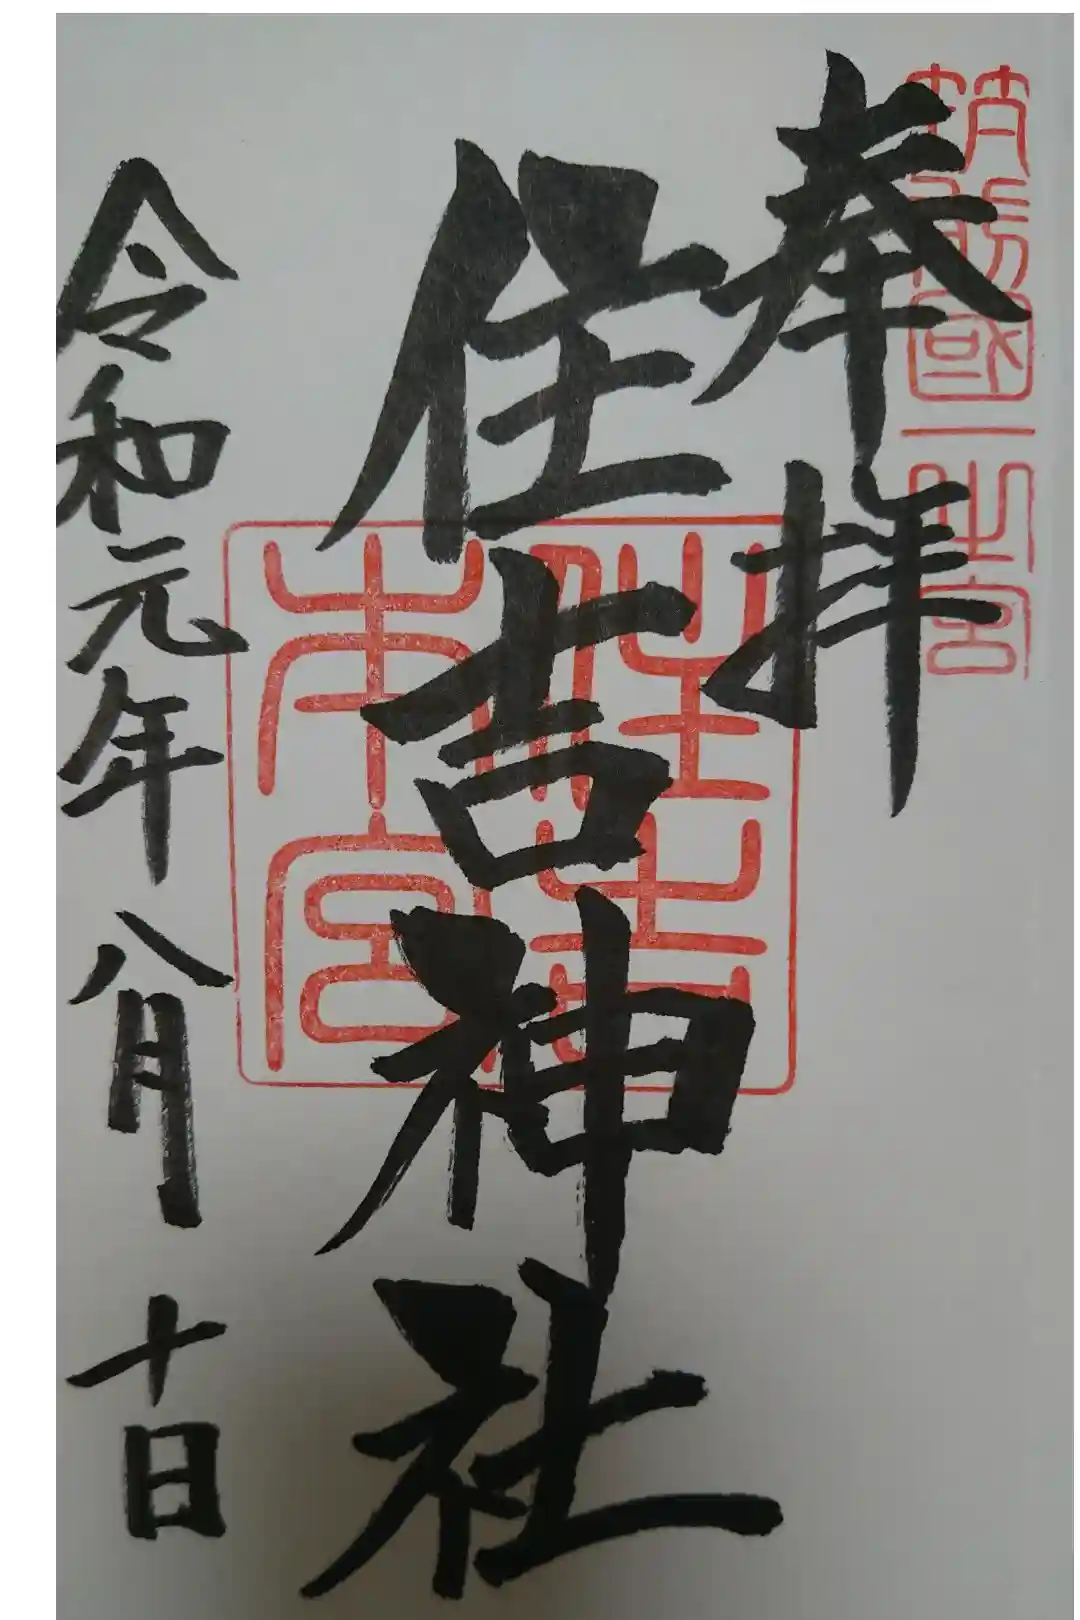 筑前國一之宮
奉拝
住吉神社
住吉
本宮
令和元年八月十日